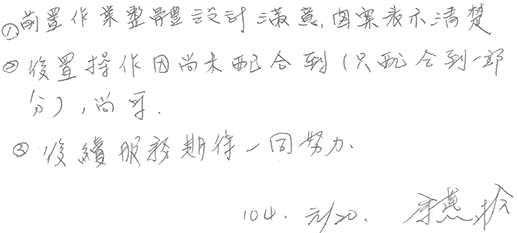 ①前置作業整體設計滿意,圖案表示清楚
②後置操作因尚未配合到(只配合到一部
分),尚可.
③後續服務期待一同努力.
104.